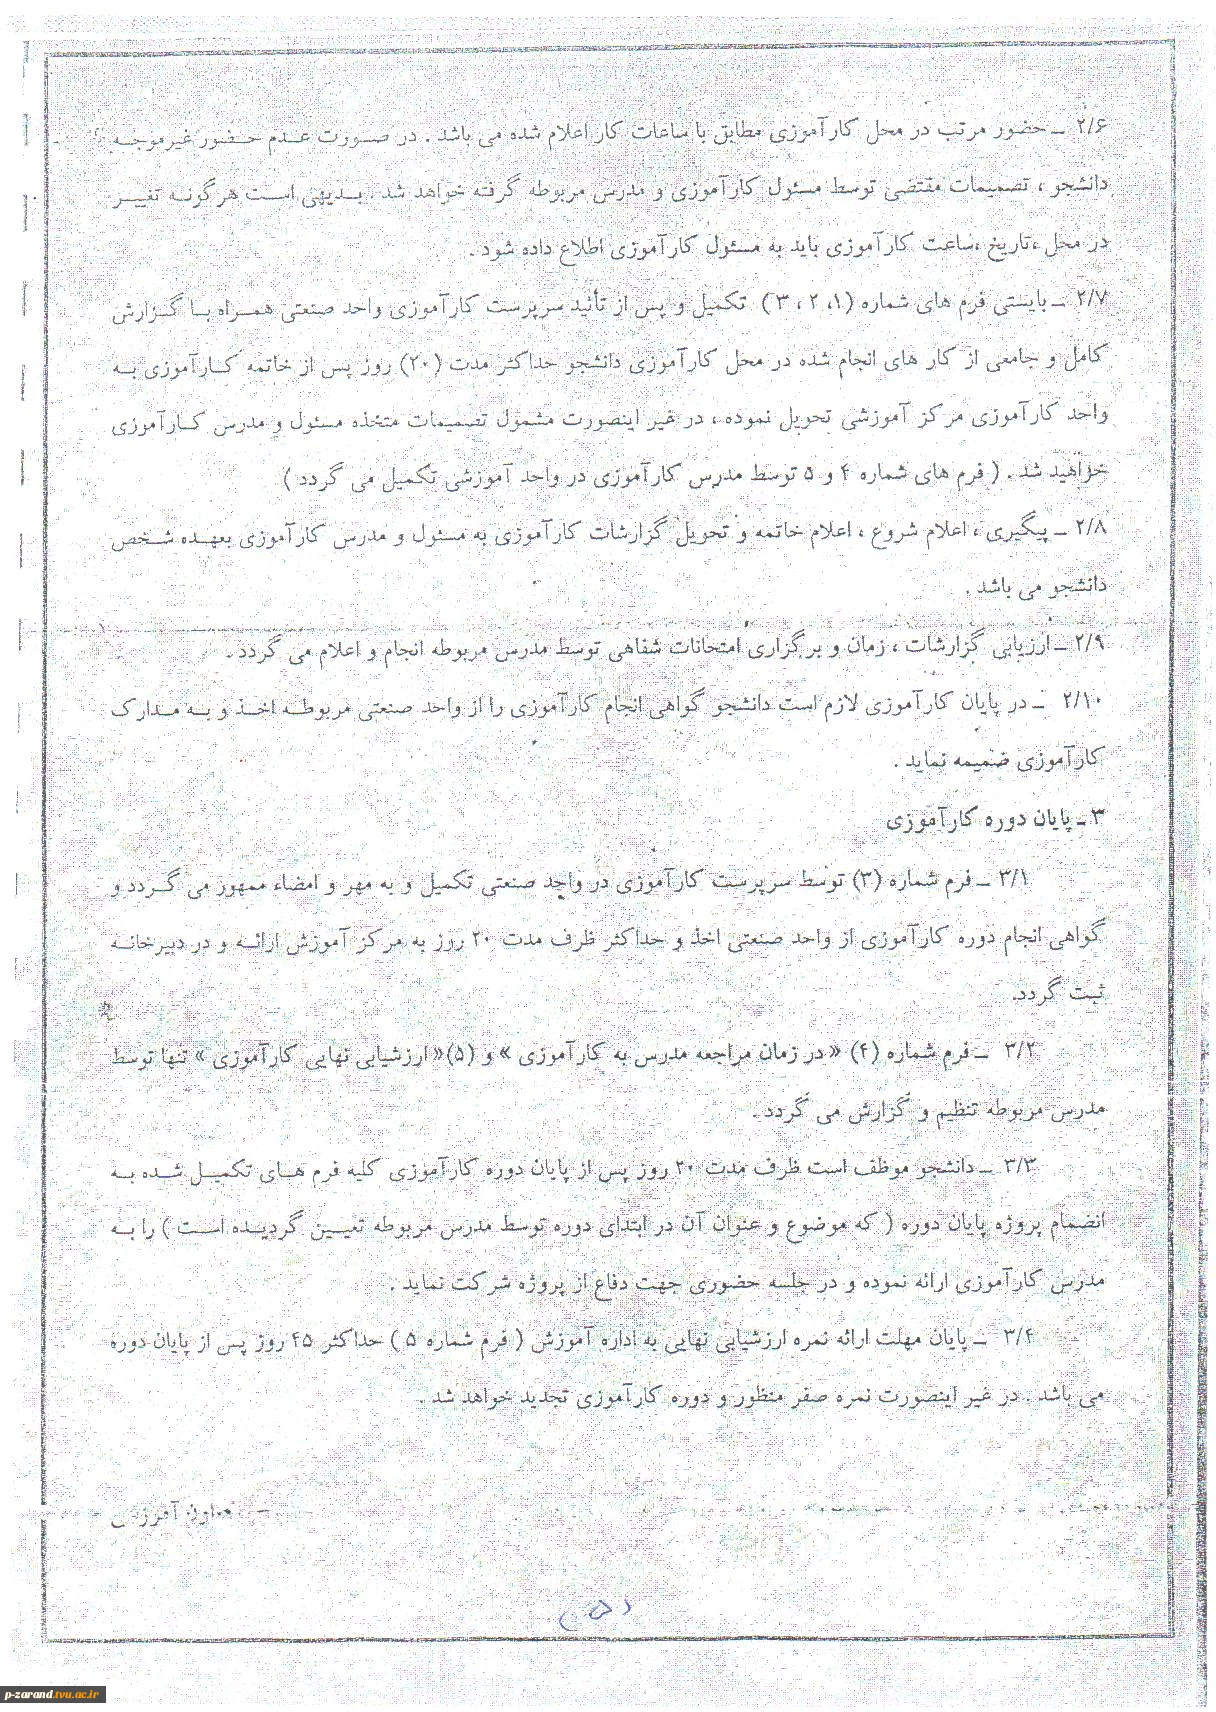 ۲/۶ ــ حضور مرتب در محل کارآموزی مطابق با ساعات کار اعلام شده می باشد . در صورت عدم حضور غیرموجه
دانشجو ، تصمیمات مقتضی توسط مسئول کارآموزی و مدرس مربوطه گرفته خواهد شد . بدیهی است هرگونه تغییر
در محل ،تاریخ ،ساعت کارآموزی باید به مسئول کارآموزی اطلاع داده شود .
۲/۷ ــ بایستی فرم های شماره (۱، ۲ ، ۳ ) تکمیل و پس از تأئید سرپرست کارآموزی واحد صنعتی همراه با گزارش
کامل و جامعی از کار های انجام شده در محل کارآموزی دانشجو حداکثر مدت (۲۰) روز پس از خاتمه کارآموزی به
واحد کارآموزی مرکز آموزشی تحویل نموده ، در غیر اینصورت مشمول تصمیمات متخذه مسئول و مدرس کارآموزی
خواهید شد . ( فرم های شماره ۴ و ۵ توسط مدرس کارآموزی در واحد آموزشی تکمیل می گردد )
۲/۸ ــ پیگیری ، اعلام شروع ، اعلام خاتمه و تحویل گزارشات کارآموزی به مسئول و مدرس کارآموزی بعهده شخص
دانشجو می باشد .
۲/۹ ــ ارزیابی گزارشات ، زمان و برگزاری امتحانات شفاهی توسط مدرس مربوطه انجام و اعلام می گردد .
۲/۱۰ ــ در پایان کارآموزی لازم است دانشجو گواهی انجام کارآموزی را از واحد صنعتی مربوطه اخذ و به مدارک
کارآموزی ضمیمه نماید .
۳ ــ پایان دوره کارآموزی
۳/۱ ــ فرم شماره (۳) توسط سرپرست کارآموزی در واحد صنعتی تکمیل و به مهر و امضاء ممهور می گردد و
گواهی انجام دوره کارآموزی از واحد صنعتی اخذ و حداکثر ظرف مدت ۲۰ روز به مرکز آموزش ارائه و در دبیرخانه
ثبت گردد.
۳/۲ ــ فرم شماره (۴) « در زمان مراجعه مدرس به کارآموزی » و (۵)« ارزشیابی نهایی کارآموزی » تنها توسط
مدرس مربوطه تنظیم و گزارش می گردد .
۳/۳ ــ دانشجو موظف است ظرف مدت ۲۰ روز پس از پایان دوره کارآموزی کلیه فرم های تکمیل شده به
انضمام پروژه پایان دوره ( که موضوع و عنوان آن در ابتدای دوره توسط مدرس مربوطه تعیین گردیده است ) را به
مدرس کارآموزی ارائه نموده و در جلسه حضوری جهت دفاع از پروژه شرکت نماید .
۳/۴ ــ پایان مهلت ارائه نمره ارزشیابی نهایی به اداره آموزش ( فرم شماره ۵ ) حداکثر ۴۵ روز پس از پایان دوره
می باشد . در غیر اینصورت نمره صفر منظور و دوره کارآموزی تجدید خواهد شد .
معاون آموزش
(۵)
p-zarand.tvu.ac.ir